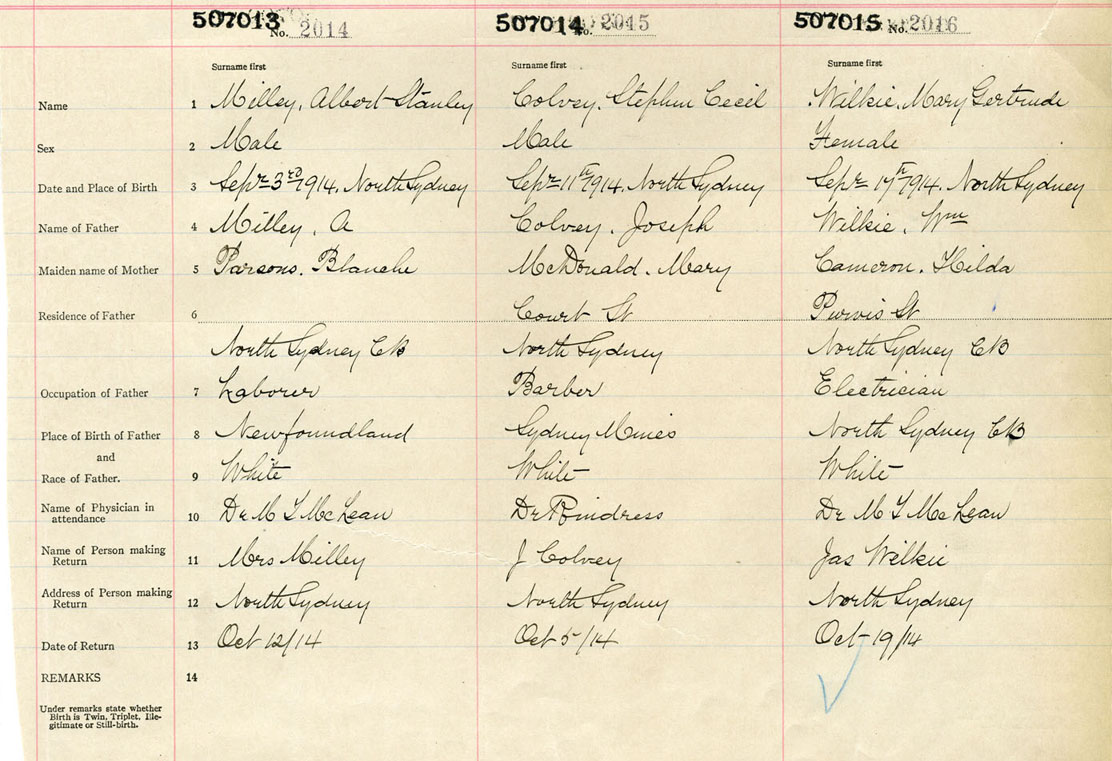 507013 No. 2014 507014 No. 2015 507015 No. 2016
Surname first Surname first Surname first
Name 1 Milley, Albert Stanley Colvey, Stephen Cecil Wilkie, Mary Gertrude
Sex 2 Male Male Female
Date and Place of Birth 3 Sepr 3rd 1914, North Sydney Sepr 11th 1914, North Sydney Sepr 17th 1914, North Sydney
Name of Father 4 Milley, A Colvey, Joseph Wilkie, Wm
Maiden name of Mother 5 Parsons, Blanche McDonald, Mary Cameron, Hilda
Residence of Father 6 Court St Purvis St
North Sydney CB North Sydney North Sydney CB
Occupation of Father 7 Laborer Barber Electrician
Place of Birth of Father 8 Newfoundland Sydney Mines North Sydney CB
and
Race of Father. 9 White White White
Name of Physician in
attendance 10 Dr M T McLean Dr Rindress Dr M T McLean
Name of Person making
Return 11 Mrs Milley J Colvey Jas Wilkie
Address of Person making
Return 12 North Sydney North Sydney North Sydney
Date of Return 13 Oct 12/14 Oct 5/14 Oct 19/14
REMARKS 14
Under remarks state whether
Birth is Twin, Triplet, Ille-
gitimate or Still-birth.